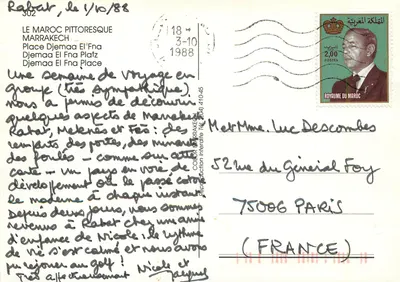 Rabat, le 1/10/88
302
LE MAROC PITTORESQUE
MARRAKECH
Place Djemaa El'Fna
Djemaa El Fna Platz
Djemaa El Fna Place
Une semaine de voyage en
groupe (très sympathique)
nous a permis de découvrir
quelques aspects de Marrakech
Rabat, Meknès et Fès : des
remparts, des portes, des minarets
des foules - comme sur cette
carte - un pays en voie de
développement où le passé côtoie
le moderne à chaque instant
Depuis deux jours, nous sommes
revenus à Rabat chez un ami
d'enfance de Nicole : le rythme
de vie s'est calmé et nous avons
pu rejouer au golf !
Très affectueusement Nicole et
18-
3-10
1988
المملكة المغربية
2,00
ROYAUME DU MAROC
M et Mme. Luc Descombes
52 rue du Général Foy
75008 PARIS
(FRANCE)